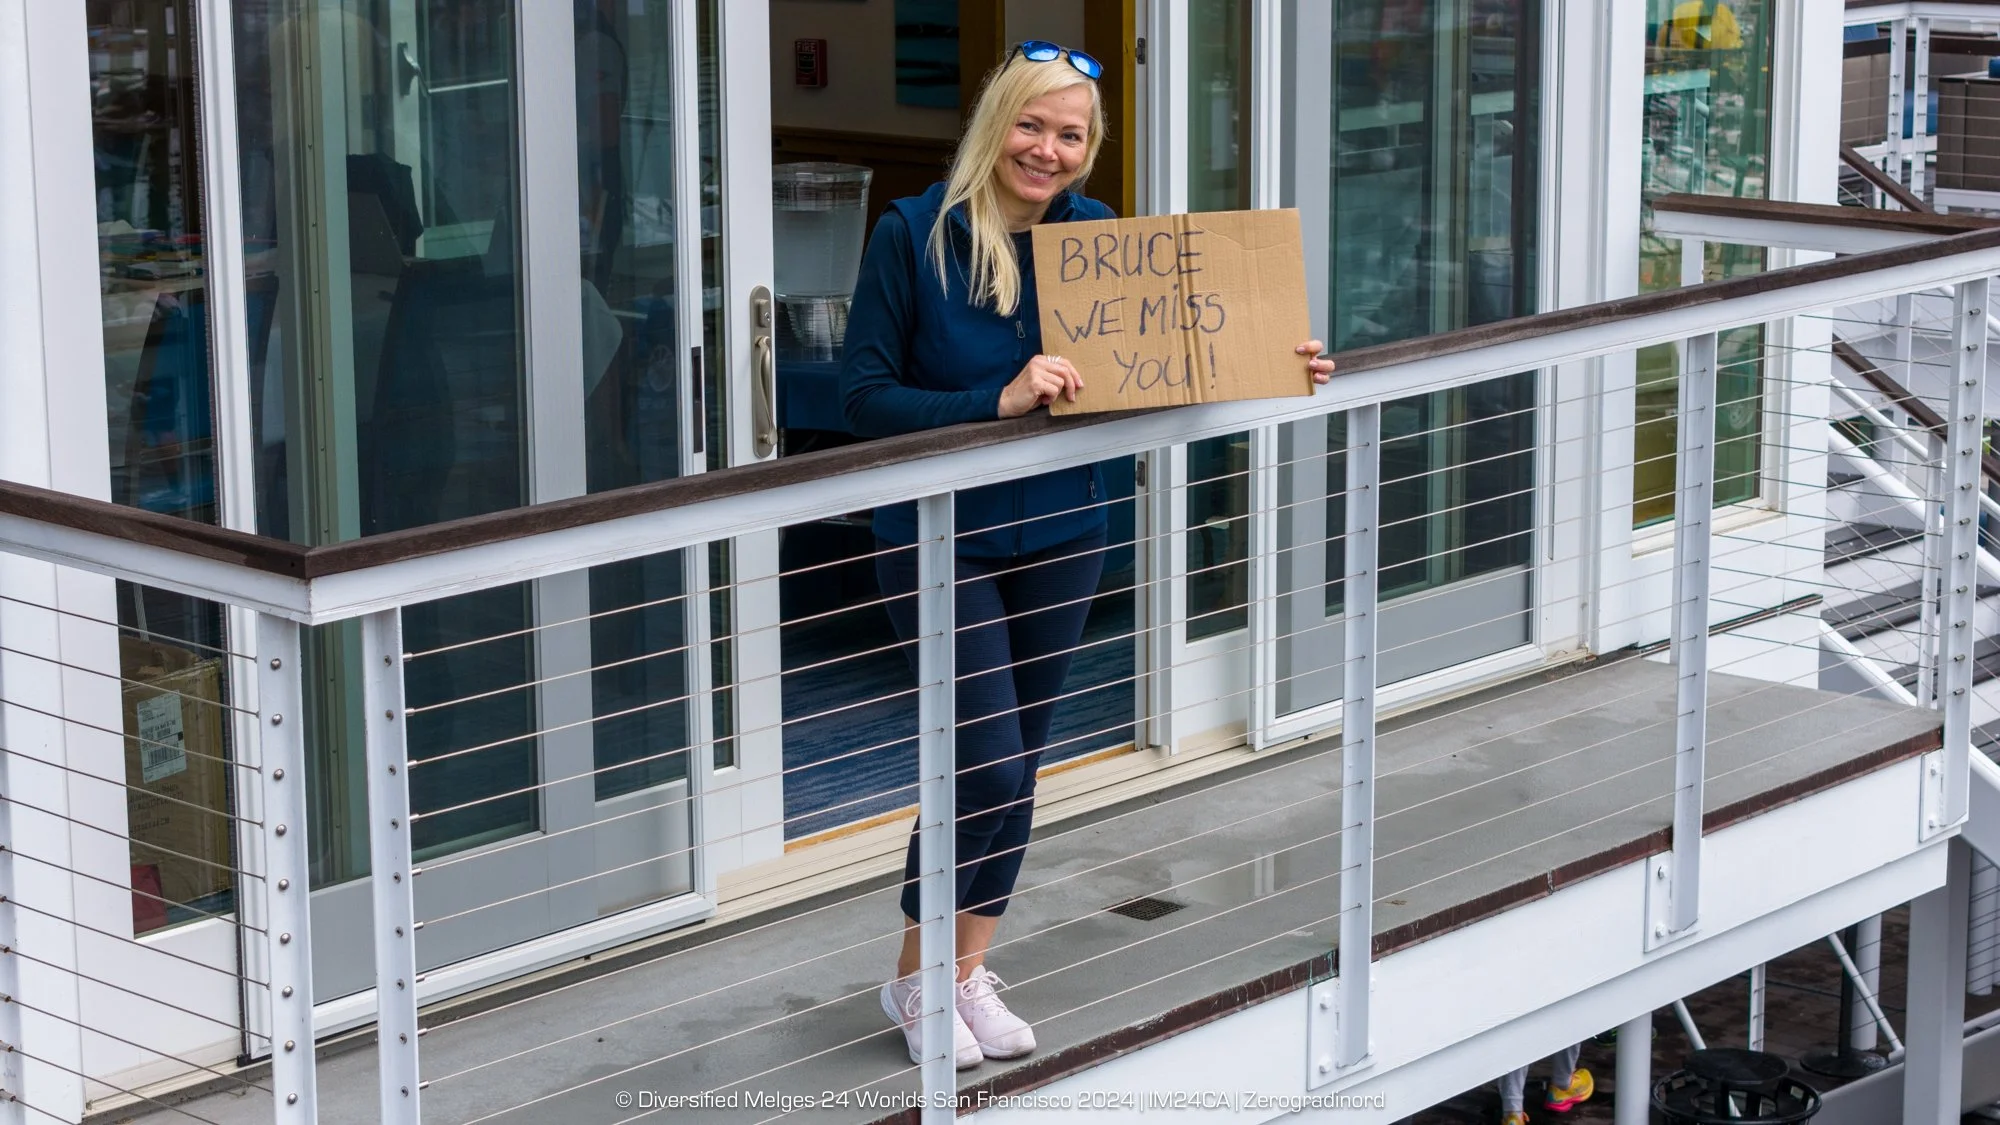 FIRE
BRUCE
WE MISS
YOU!
© Diversified Melges 24 Worlds San Francisco 2024 | IM24CA | Zerogradinord